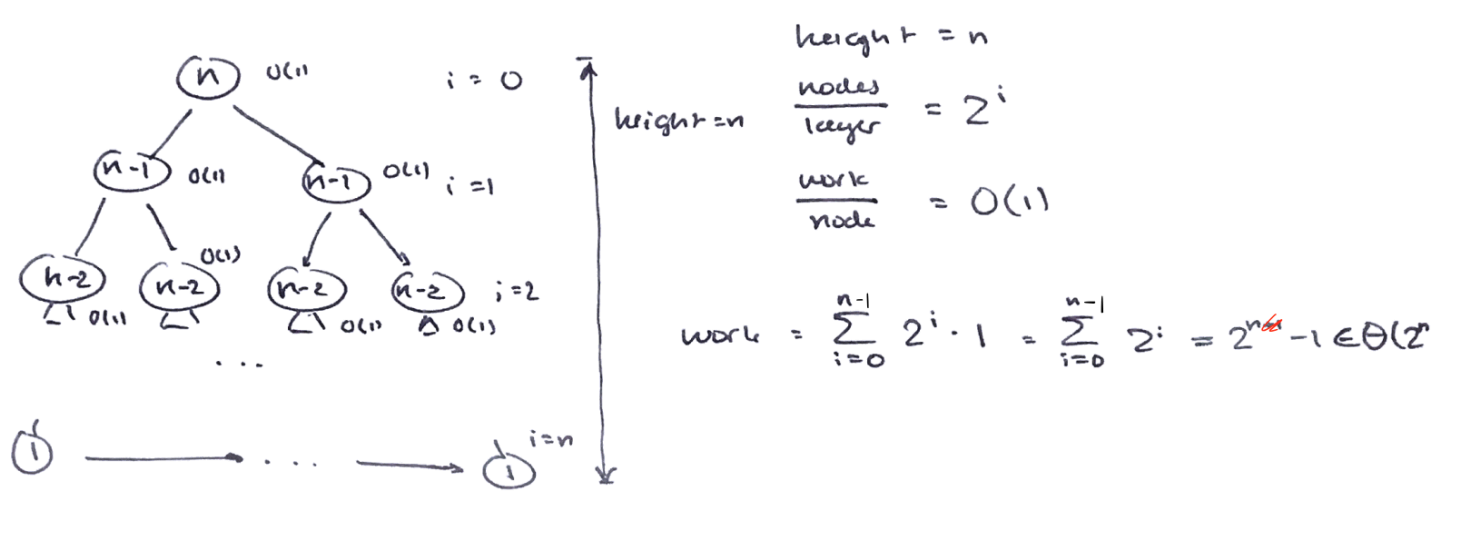 n O(1) i = 0
n-1 O(1) n-1 O(1) i = 1
n-2 O(1) n-2 O(1) n-2 O(1) n-2 O(1) i = 2
...
1 ... 1 i = n
height = n
height = n
nodes/layer = 2^i
work/node = O(1)
work = ∑_{i=0}^{n-1} 2^i · 1 = ∑_{i=0}^{n-1} 2^i = 2^n - 1 ∈ Θ(2^n